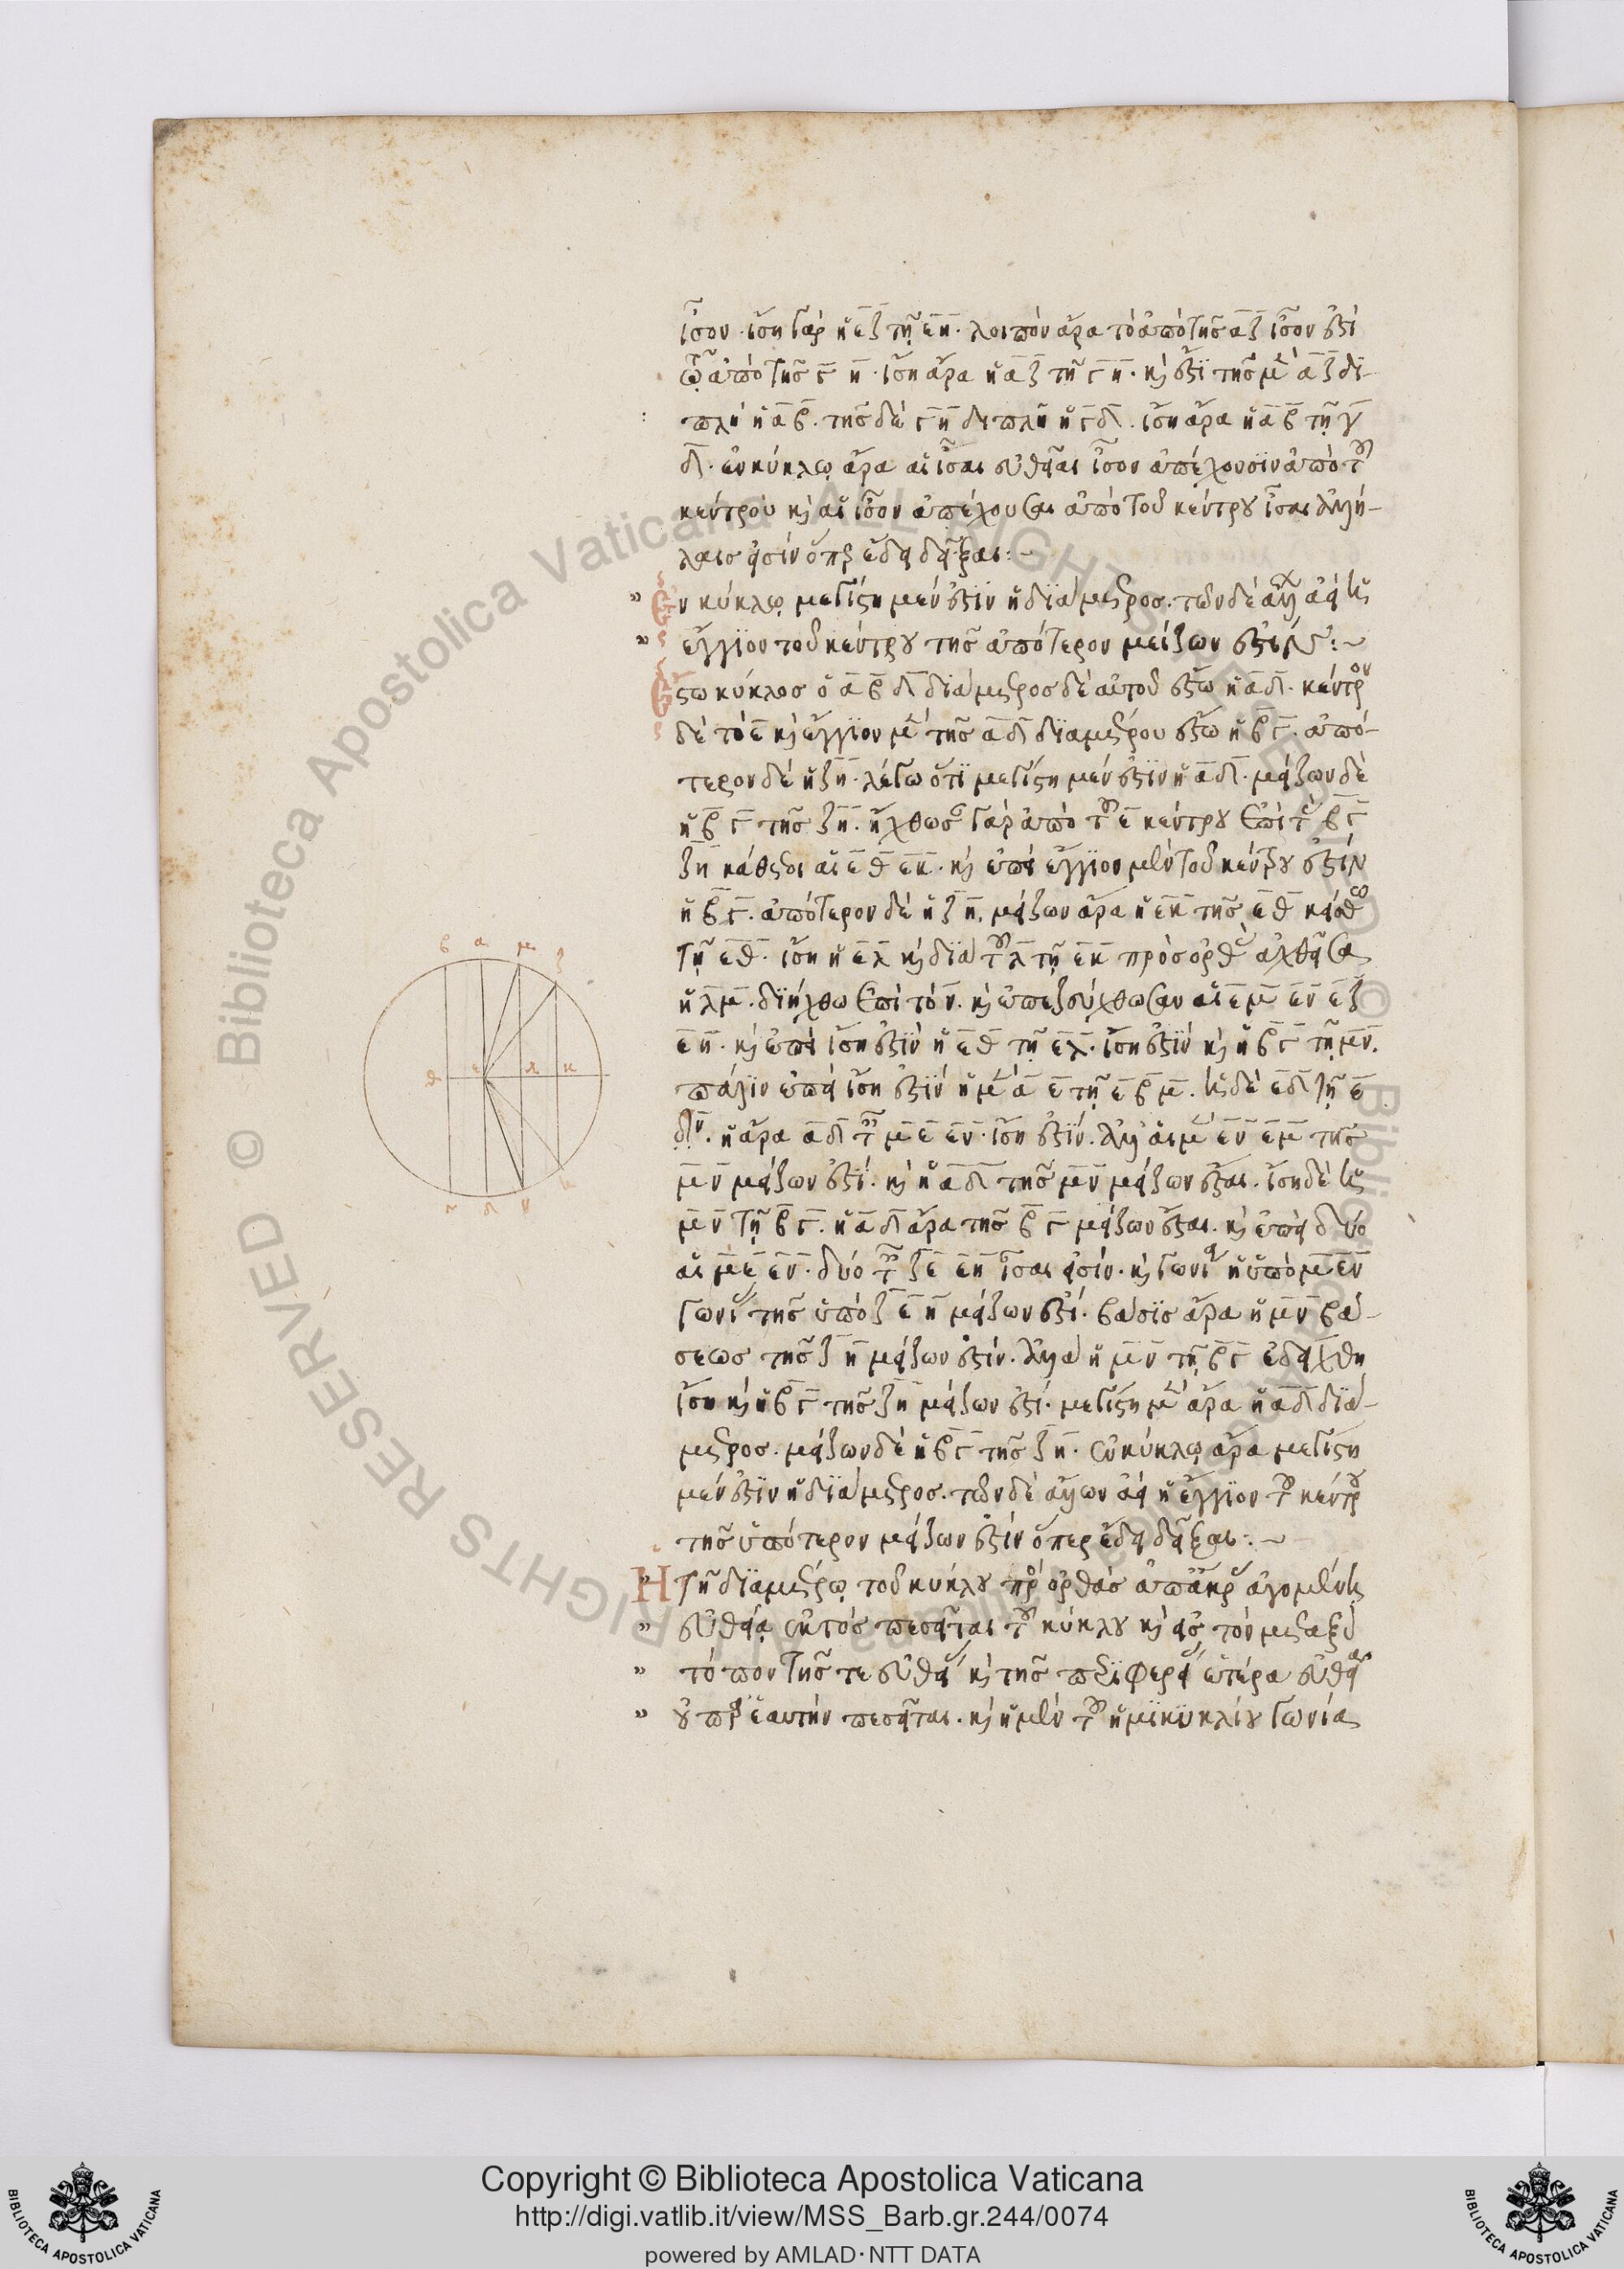 ἴσον· ἴση γὰρ ἡ εζ τῇ εη· λοιπὸν ἄρα τὸ ἀπὸ τῆς αζ ἴσον ἐστὶ
τῷ ἀπὸ τῆς γη· ἴση ἄρα ἡ αζ τῇ γη· καὶ ἐστι τῆς μὲν αζ δι-
πλῆ ἡ αβ· τῆς δὲ γη διπλῆ ἡ γδ. ἴση ἄρα ἡ αβ τῇ γ
δ· ἐν κύκλῳ ἄρα αἱ ἴσαι εὐθεῖαι ἴσον ἀπέχουσιν ἀπὸ τοῦ
κέντρου καὶ αἱ ἴσον ἀπέχουσαι ἀπὸ τοῦ κέντρου ἴσαι ἀλλή-
λαις εἰσίν ὅπερ ἔδει δεῖξαι:~
Ἐν κύκλῳ μεγίστη μέν ἐστιν ἡ διάμετρος· τῶν δὲ ἄλλων ἀεὶ ἡ
ἔγγιον τοῦ κέντρου τῆς ἀπότερον μείζων ἐστίν:~
Ἔστω κύκλος ὁ αβγδ διάμετρος δὲ αὐτοῦ ἔστω ἡ αδ· κέντρον
δὲ τὸ ε καὶ ἔγγιον μὲν τῆς αδ διαμέτρου ἔστω ἡ βγ· ἀπό-
τερον δὲ ἡ ζη· λέγω ὅτι μεγίστη μέν ἐστιν ἡ αδ· μείζων δὲ
ἡ βγ τῆς ζη· ἤχθωσαν γὰρ ἀπὸ τοῦ ε κέντρου ἐπὶ τὰς βγ
ζη κάθετοι αἱ εθ εκ· καὶ ἐπεὶ ἔγγιον μὲν τοῦ κέντρου ἐστίν
ἡ βγ· ἀπότερον δὲ ἡ ζη, μείζων ἄρα ἡ εκ τῆς εθ κείσθω
τῇ εθ· ἴση ἡ ελ καὶ διὰ τοῦ λ τῇ εκ πρὸς ὀρθὰς ἀχθεῖσα
ἡ λμ· διήχθω ἐπὶ τὸ ν· καὶ ἐπεζεύχθωσαν αἱ εμ εν εζ
εη· καὶ ἐπεὶ ἴση ἐστὶν ἡ εθ τῇ ελ· ἴση ἐστὶν καὶ ἡ βγ τῇ μν.
πάλιν ἐπεὶ ἴση ἐστὶν ἡ μὲν αε τῇ εμ. ἡ δὲ εδ τῇ ε
ν. ἡ ἄρα αδ ταῖς με εν· ἴση ἐστίν. ἀλλ' αἱ μὲν εν εμ τῆς
μν μείζων ἐστί· καὶ ἡ αδ τῆς μν μείζων ἔσται. ἴση δὲ ἡ
μν τῇ βγ. ἡ αδ ἄρα τῆς βγ μείζων ἔσται. καὶ ἐπεὶ δύο
αἱ με εν· δύο ταῖς ζε εη ἴσαι εἰσίν· καὶ γωνία ἡ ὑπὸ μεν
γωνίας τῆς ὑπὸ ζεη μείζων ἐστί· βάσις ἄρα ἡ μν βά-
σεως τῆς ζη μείζων ἐστίν. ἀλλὰ ἡ μν τῇ βγ ἐδείχθη
ἴση καὶ ἡ βγ τῆς ζη μείζων ἐστί· μεγίστη μὲν ἄρα ἡ αδ διά-
μετρος· μείζων δὲ ἡ βγ τῆς ζη· ἐν κύκλῳ ἄρα μεγίστη
μέν ἐστιν ἡ διάμετρος· τῶν δὲ ἄλλων ἀεὶ ἡ ἔγγιον τοῦ κέντρου
τῆς ὑπότερον μείζων ἐστίν ὅπερ ἔδει δεῖξαι:~
Ἡ τῇ διαμέτρῳ τοῦ κύκλου πρὸς ὀρθὰς ἀπ' ἄκρας ἀγομένη
εὐθεῖα ἐκτὸς πεσεῖται τοῦ κύκλου καὶ εἰς τὸν μεταξὺ
τόπον τῆς τε εὐθείας καὶ τῆς περιφερείας ἑτέρα εὐθεῖα
οὐ παρεμπεσεῖται· καὶ ἡ μὲν τοῦ ἡμικυκλίου γωνία
β α μ ζ
θ ε λ κ
γ δ ν η
Copyright © Biblioteca Apostolica Vaticana
http://digi.vatlib.it/view/MSS_Barb.gr.244/0074
powered by AMLAD·NTT DATA
BIBLIOTECA APOSTOLICA VATICANA
BIBLIOTECA APOSTOLICA VATICANA
© Biblioteca Apostolica Vaticana ALL RIGHTS RESERVED